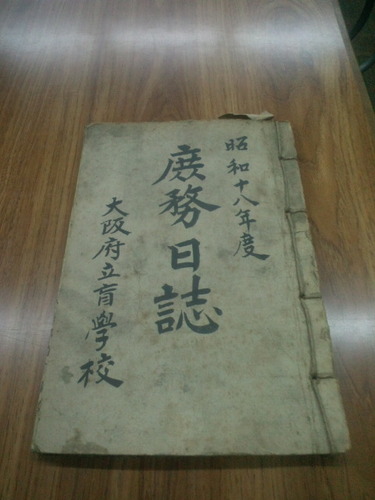 昭和十八年度
庶務日誌
大阪府立盲學校